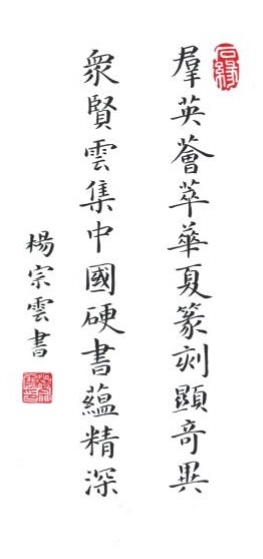 石緣
羣英薈萃華夏篆刻顯奇異
衆賢雲集中國硬書蘊精深
楊宗雲書